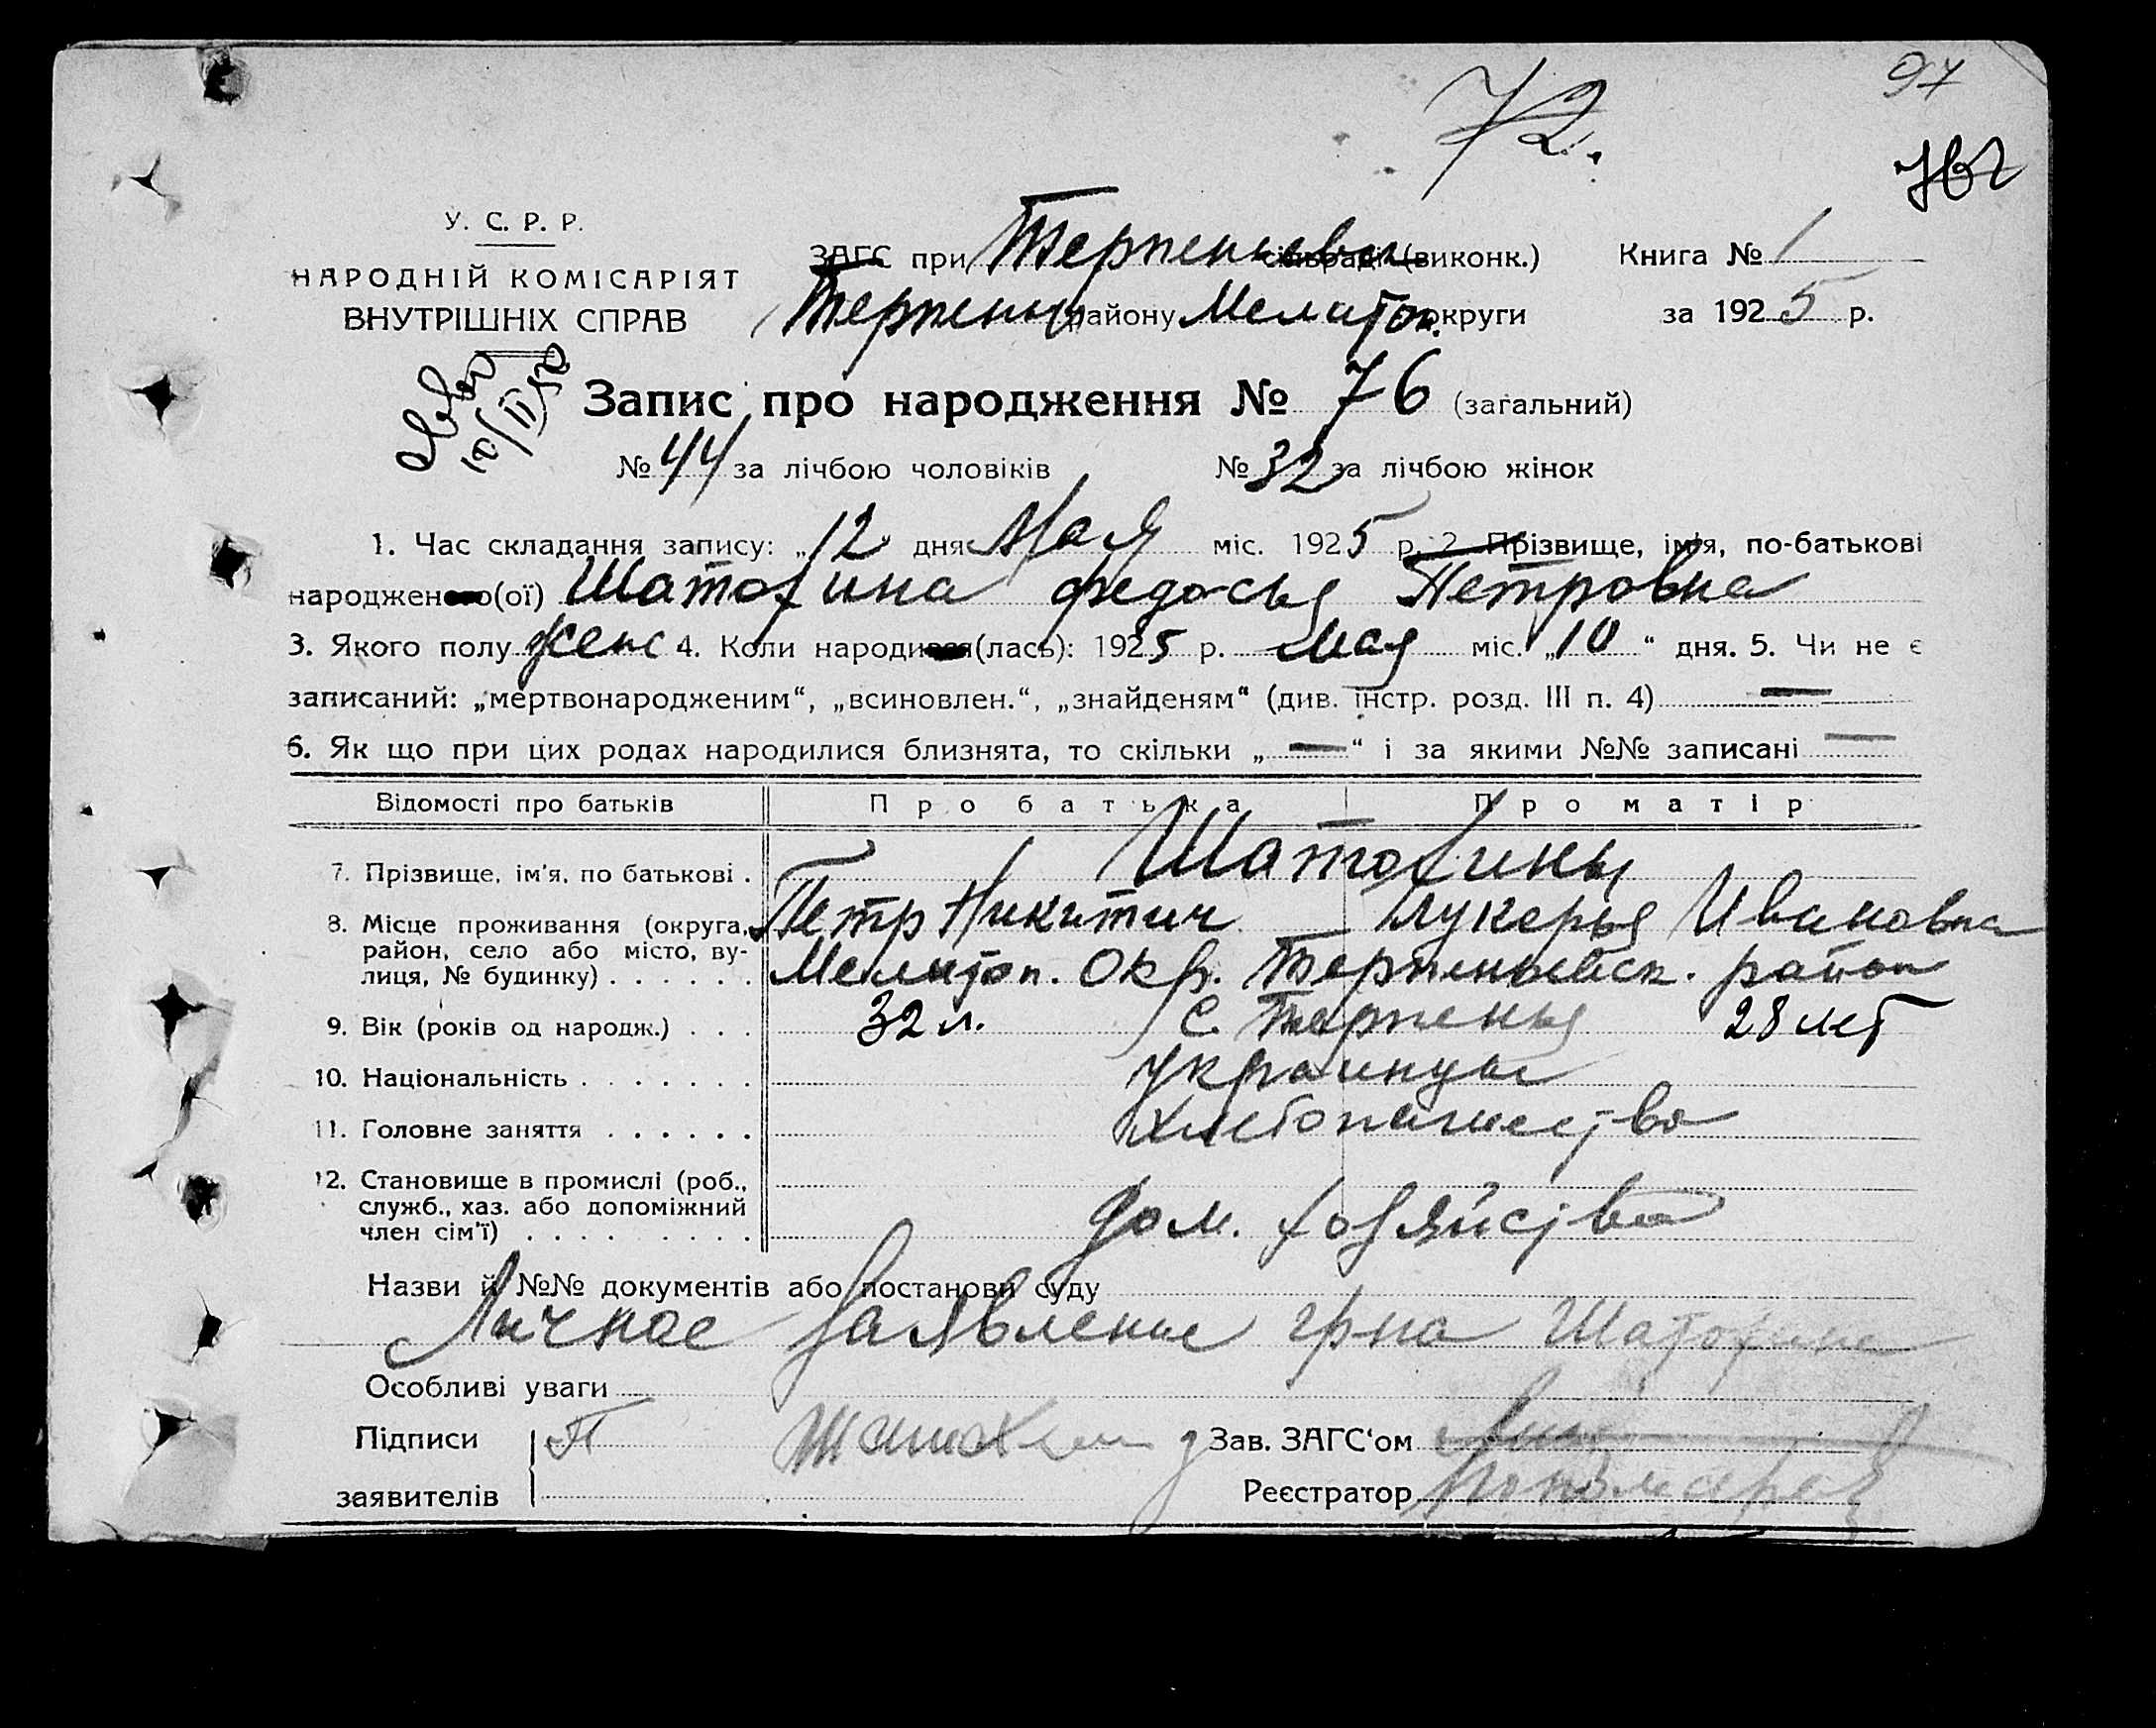 97
72.
У. С. Р. Р.
НАРОДНІЙ КОМІСАРІЯТ
ВНУТРІШНІХ СПРАВ
ЗАГС при Терпеньевск сільраді (виконк.) Книга № 1
Терпень району Мелитоп. округи за 1925 р.
Запис про народження № 76 (загальний)
№ 44 за лічбою чоловіків № 32 за лічбою жінок
1. Час складання запису: „12" дня Мая міс. 1925 р. 2. Прізвище, ім'я, по-батькові
народженого(ої) Шатохина Федосья Петровна
3. Якого полу женс 4. Коли народився(лась): 1925 р. Мая міс. „10" дня. 5. Чи не є
записаний: „мертвонародженим", „всиновлен.", „знайденям" (див. інстр. розд. III п. 4) —
6. Як що при цих родах народилися близнята, то скільки „—" і за якими №№ записані —
Відомості про батьків Про батька Про матір
7. Прізвище, ім'я, по батькові . Шатохины
Петр Никитич Лукерья Ивановна
8. Місце проживання (округа, район, село або місто, ву-
лиця, № будинку) . . . . . . Мелитоп. Окр. Терпеньевск. район
9. Вік (років од народж.) . . . 32 л. с. Терпенья 28 лет
10. Національність . . . . . . . Украинцы
11. Головне заняття . . . . . . Хлебопашество
12. Становище в промислі (роб.,
служб., хаз. або допоміжний
член сім'ї) . . . . . . . . . дом. хозяйство
Назви й №№ документів або постанови суду
Личное заявление гр-на Шатохина
Особливі уваги
Підписи П Зав. ЗАГС'ом
заявителів Реєстратор